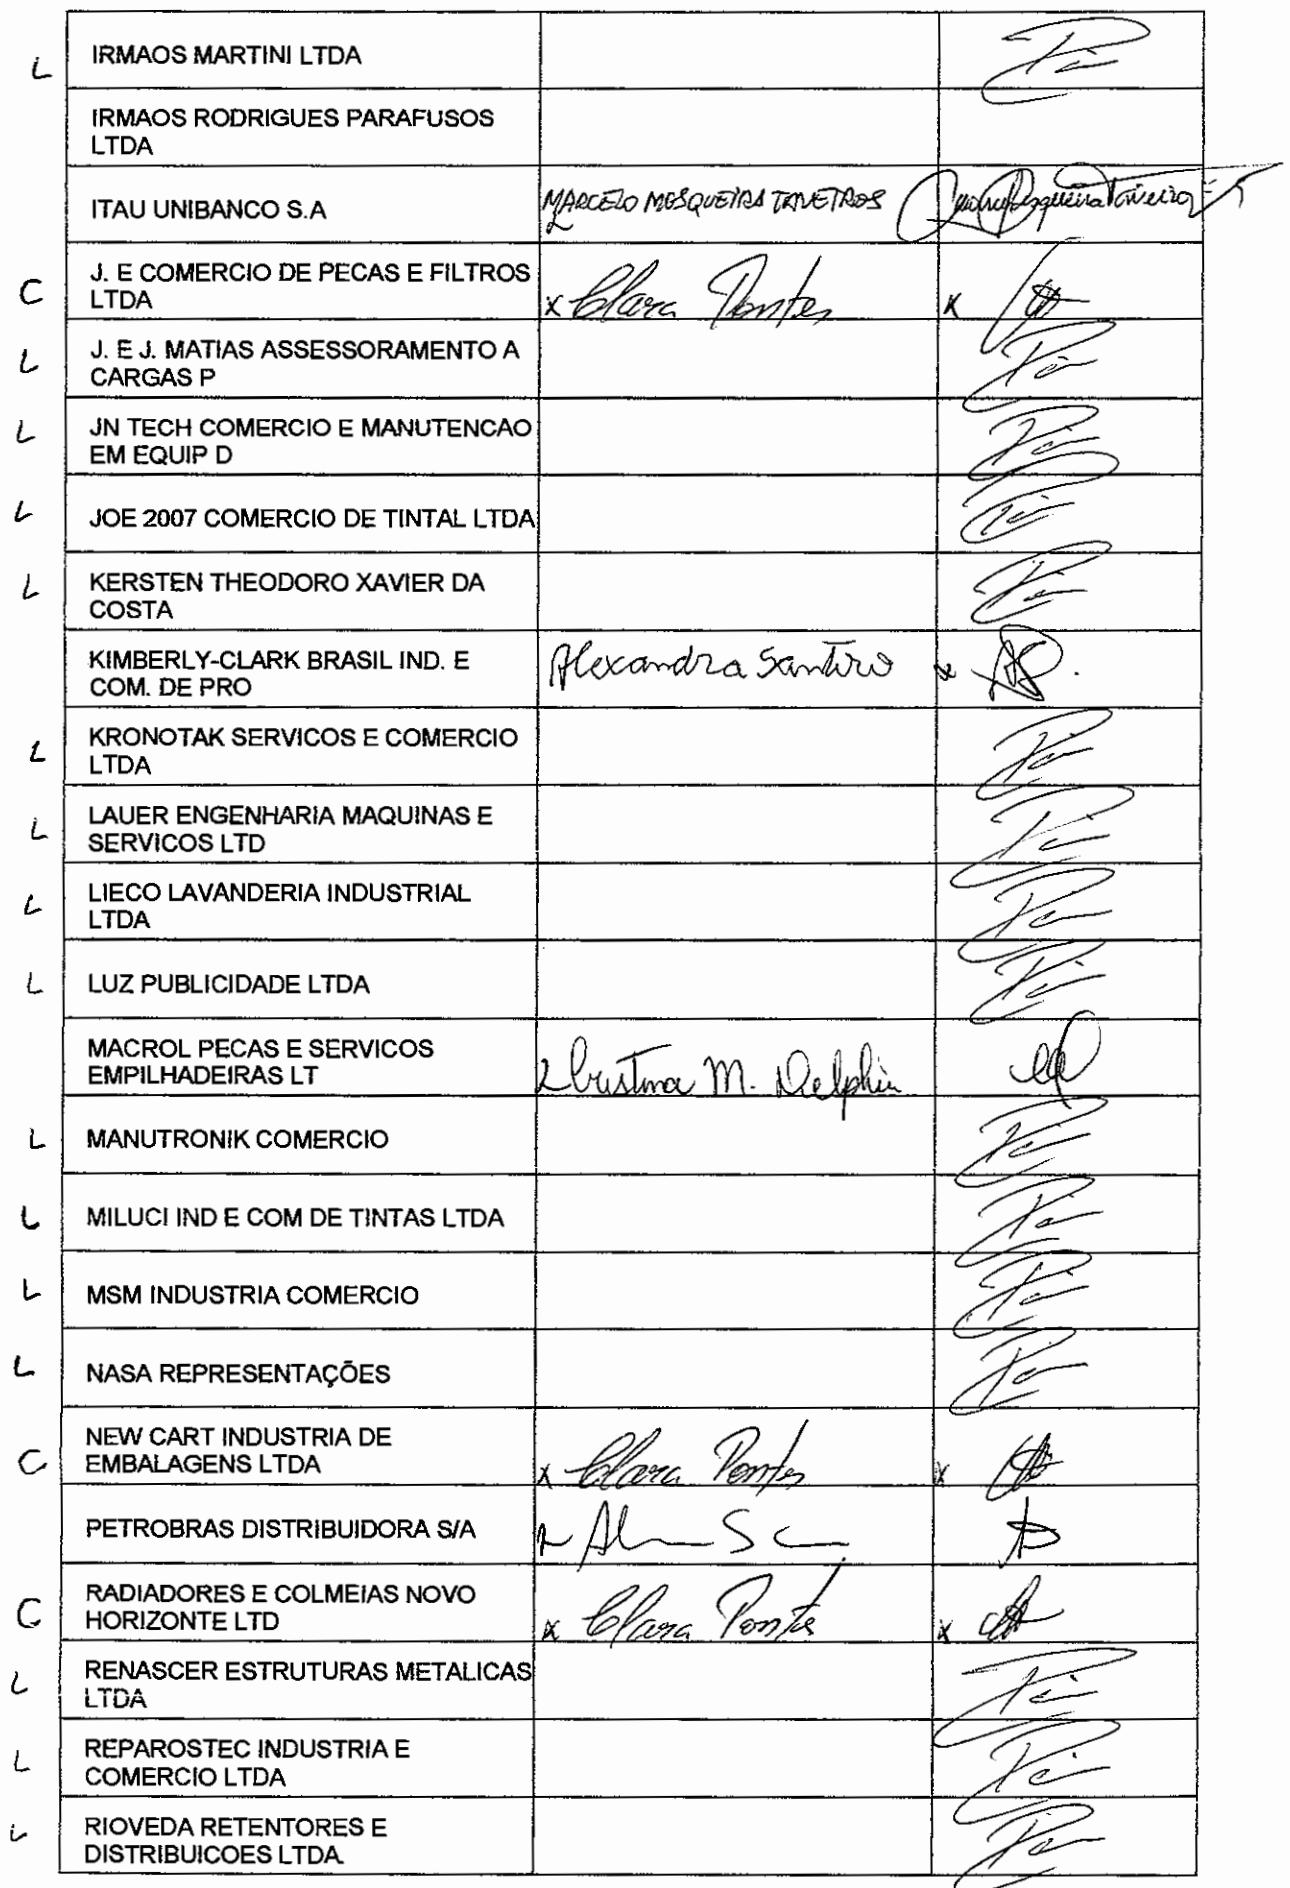 L IRMAOS MARTINI LTDA
IRMAOS RODRIGUES PARAFUSOS
LTDA
ITAU UNIBANCO S.A MARCELO MESQUEITA
C J. E COMERCIO DE PECAS E FILTROS
LTDA x Clara Pontes x
L J. E J. MATIAS ASSESSORAMENTO A
CARGAS P
L JN TECH COMERCIO E MANUTENCAO
EM EQUIP D
L JOE 2007 COMERCIO DE TINTAL LTDA
L KERSTEN THEODORO XAVIER DA
COSTA
KIMBERLY-CLARK BRASIL IND. E
COM. DE PRO Alexandra x
L KRONOTAK SERVICOS E COMERCIO
LTDA
L LAUER ENGENHARIA MAQUINAS E
SERVICOS LTD
L LIECO LAVANDERIA INDUSTRIAL
LTDA
L LUZ PUBLICIDADE LTDA
MACROL PECAS E SERVICOS
EMPILHADEIRAS LT Cristina M. Delphin
L MANUTRONIK COMERCIO
L MILUCI IND E COM DE TINTAS LTDA
L MSM INDUSTRIA COMERCIO
L NASA REPRESENTAÇÕES
C NEW CART INDUSTRIA DE
EMBALAGENS LTDA x Clara Pontes x
PETROBRAS DISTRIBUIDORA S/A
C RADIADORES E COLMEIAS NOVO
HORIZONTE LTD x Clara Pontes x
L RENASCER ESTRUTURAS METALICAS
LTDA
L REPAROSTEC INDUSTRIA E
COMERCIO LTDA
L RIOVEDA RETENTORES E
DISTRIBUICOES LTDA